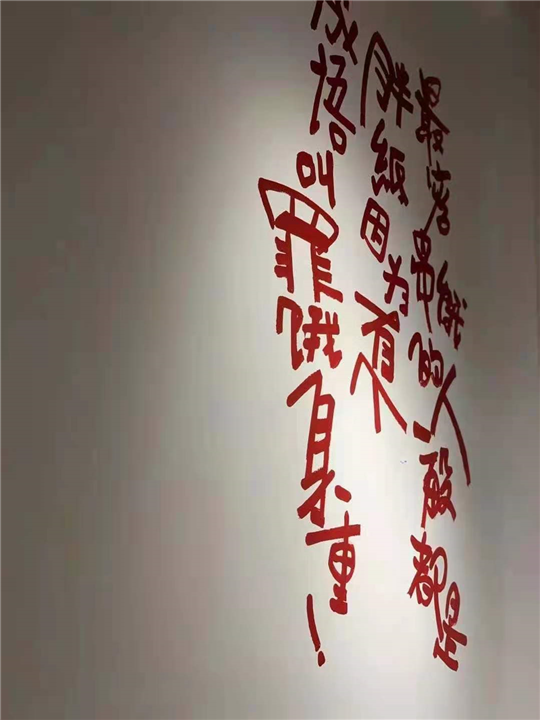 最容易饿的人一般都是
胖纸因为有个
成语叫罪饿重!